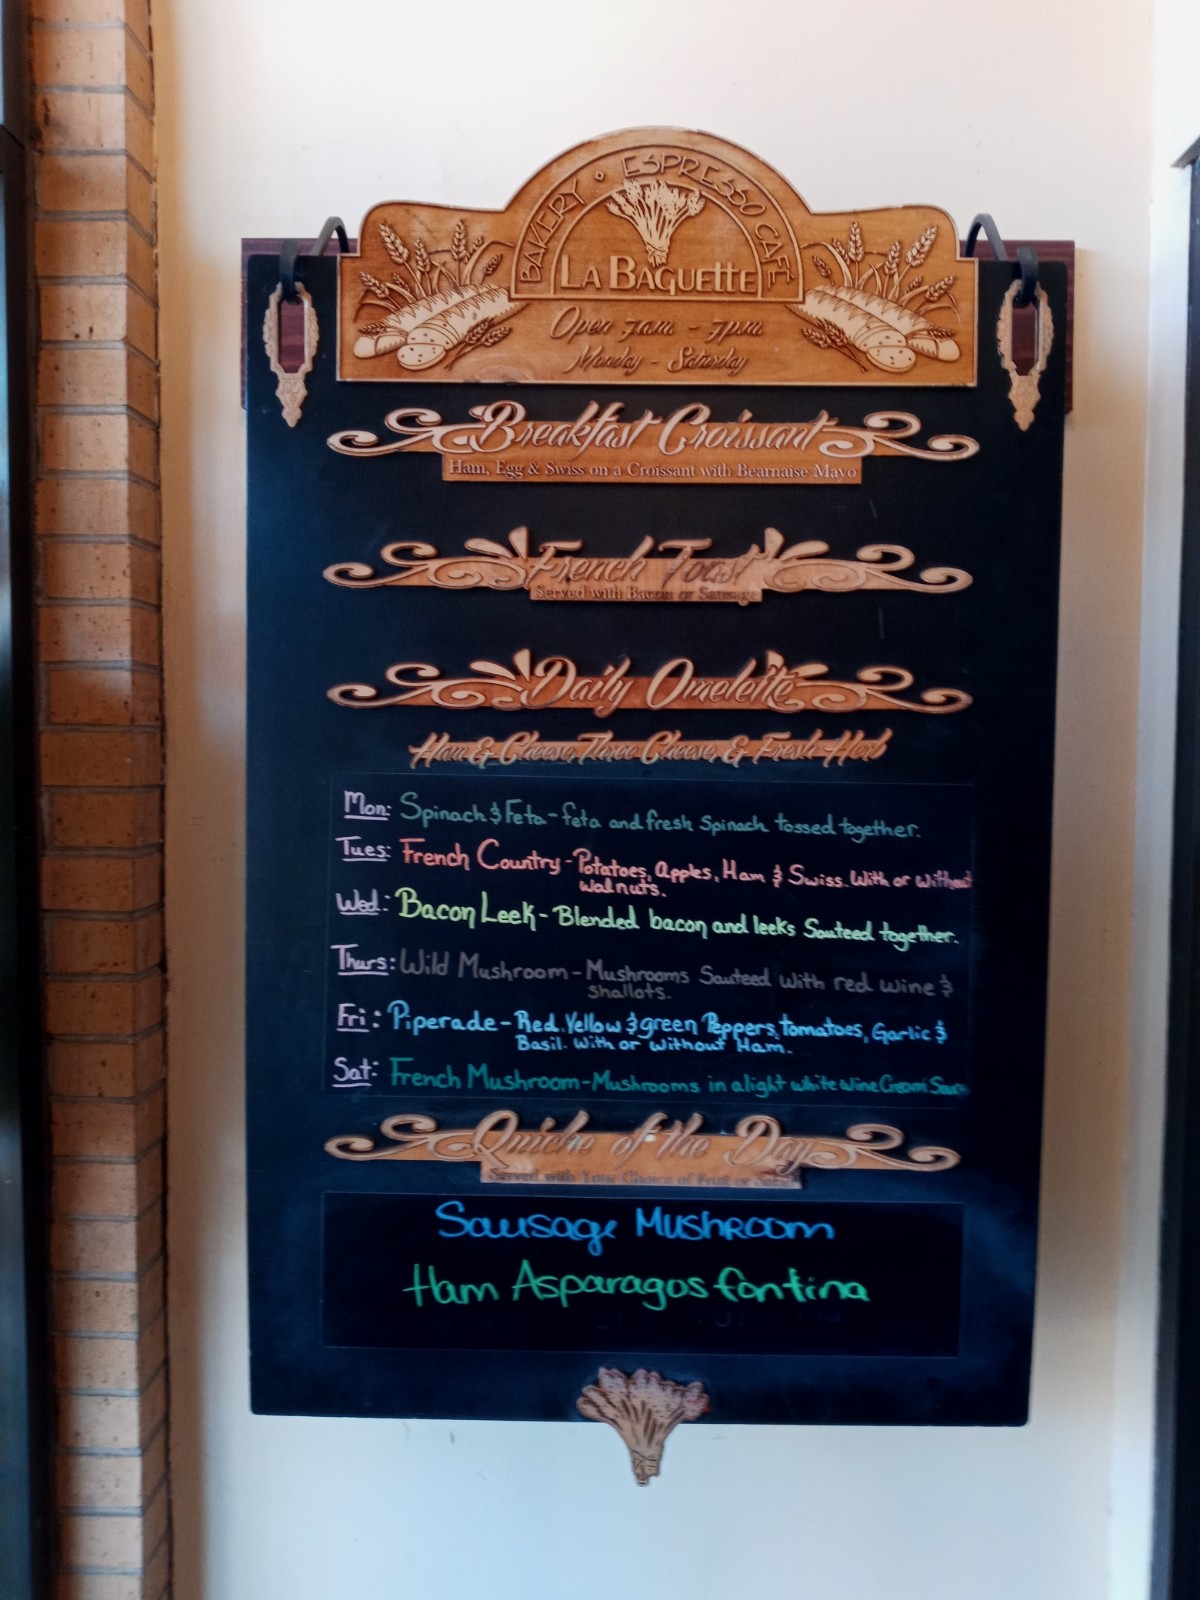 BAKERY • ESPRESSO CAFÉ
LA BAGUETTE
Open 7a.m. - 7p.m.
Monday - Saturday
Breakfast Croissant
Ham, Egg & Swiss on a Croissant with Bearnaise Mayo
French Toast
Served with Bacon or Sausage
Daily Omelette
Ham & Cheese, Three Cheese, & Fresh Herb
Mon: Spinach & Feta - feta and fresh spinach tossed together.
Tues: French Country - Potatoes, Apples, Ham & Swiss. With or without
walnuts.
Wed: Bacon Leek - Blended bacon and leeks Sauteed together.
Thurs: Wild Mushroom - Mushrooms Sauteed with red wine &
shallots.
Fri: Piperade - Red, Yellow & green Peppers, tomatoes, Garlic &
Basil. With or without Ham.
Sat: French Mushroom - Mushrooms in a light white wine Cream Sauce
Quiche of the Day
Served with Your Choice of Fruit or Salad
Sausage Mushroom
Ham Asparagos fontina